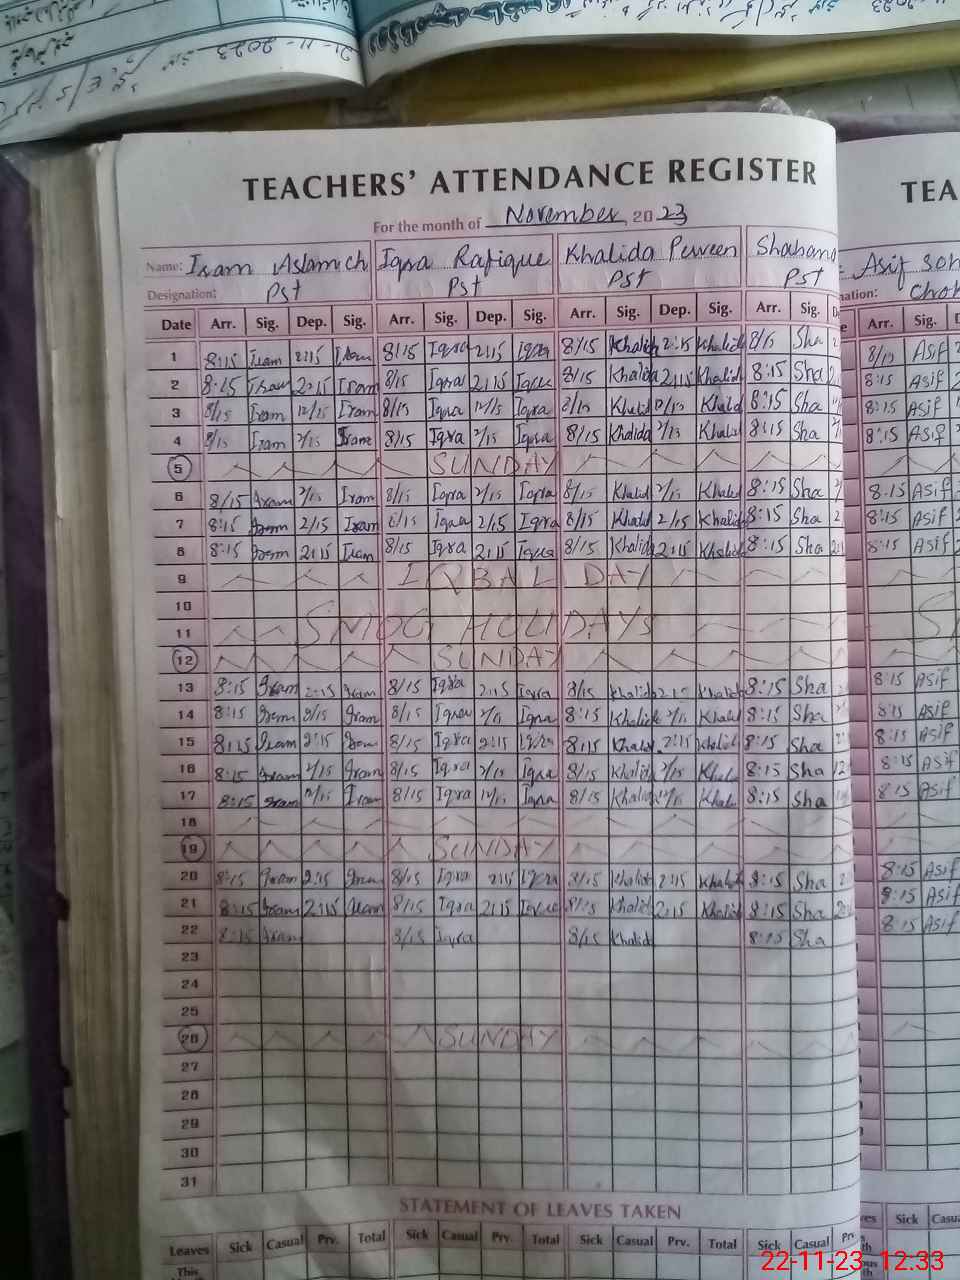 21-11-2023
2023
TEACHERS' ATTENDANCE REGISTER TEA
For the month of November, 2023
Name: Iram Aslam ch Iqra Rafique Khalida Perveen Shabana Asif
Designation: Pst Pst Pst Pst nation:
Date Arr. Sig. Dep. Sig. Arr. Sig. Dep. Sig. Arr. Sig. Dep. Sig. Arr. Sig. De Arr. Sig. D
1 8:15 Iram 2:15 Iram 8/15 Iqra 2:15 Iqra 8/15 Khalid 2:15 Khalid 8/15 Sha 2 8/15 Asif
2 8:15 Iram 2:15 Iram 8/15 Iqra 2:15 Iqra 8/15 Khalida 2:15 Khalid 8:15 Sha 2 8:15 Asif
3 8/15 Iram 12/15 Iram 8/15 Iqra 12/15 Iqra 8/15 Khalid 12/15 Khalid 8:15 Sha 8:15 Asif
4 8/15 Iram 2/15 Iram 8/15 Iqra 2/15 Iqra 8/15 Khalida 2/15 Khalid 8:15 Sha 8:15 Asif
5 SUNDAY
6 8/15 Iram 2/15 Iram 8/15 Iqra 2/15 Iqra 8/15 Khalid 2/15 Khalid 8:15 Sha 8:15 Asif
7 8:15 Iram 2/15 Iram 8/15 Iqra 2/15 Iqra 8/15 Khalid 2/15 Khalid 8:15 Sha 2 8:15 Asif
8 8:15 Iram 2:15 Iram 8/15 Iqra 2:15 Iqra 8/15 Khalid 2:15 Khalid 8:15 Sha 8:15 Asif
9 IQBAL DAY
10
11 SMOG HOLIDAYS
12 SUNDAY
13 8:15 Iram 2:15 Iram 8/15 Iqra 2:15 Iqra 8/15 Khalid 2:15 Khalid 8:15 Sha 8:15 Asif
14 8:15 Iram 2/15 Iram 8/15 Iqra 2/15 Iqra 8:15 Khalid 2/15 Khalid 8:15 Sha 8:15 Asif
15 8:15 Iram 2:15 Iram 8/15 Iqra 2:15 Iqra 8:15 Khalid 2:15 Khalid 8:15 Sha 8:15 Asif
16 8:15 Iram 2/15 Iram 8/15 Iqra 2/15 Iqra 8/15 Khalid 2/15 Khal 8:15 Sha 12 8:15 Asif
17 8:15 Iram 12/15 Iram 8/15 Iqra 12/15 Iqra 8/15 Khalid 12/15 Khal 8:15 Sha 8:15 Asif
18
19 SUNDAY
20 8:15 Iram 2:15 Iram 8/15 Iqra 2:15 Iqra 8/15 Khalid 2:15 Khalid 8:15 Sha 2 8:15 Asif
21 8:15 Iram 2:15 Iram 8/15 Iqra 2:15 Iqra 8/15 Khalid 2:15 Khalid 8:15 Sha 8:15 Asif
22 8:15 Iram 8/15 Iqra 8/15 Khalid 8:15 Sha 8:15 Asif
23
24
25
26 SUNDAY
27
28
29
30
31
STATEMENT OF LEAVES TAKEN
Leaves Sick Casual Prv. Total Sick Casual Prv. Total Sick Casual Prv. Total Sick Casual Prv. Sick Casua
This
22-11-23 12:33